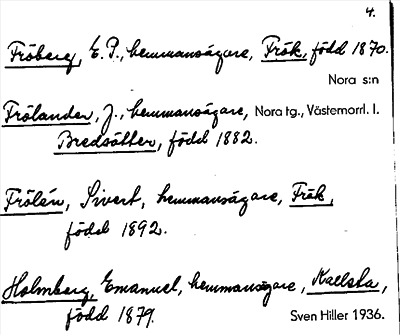 4.
Fröberg, E. P., hemmansägare, Fräk, född 1870.
Nora s:n
Frölander, J., hemmansägare, Nora tg., Västernorrl. l.
Bredsätter, född 1882.
Frölén, Sivert, hemmansägare, Fräk,
född 1892.
Holmberg, Emanuel, hemmansägare, Kaelsta,
född 1879.
Sven Hiller 1936.